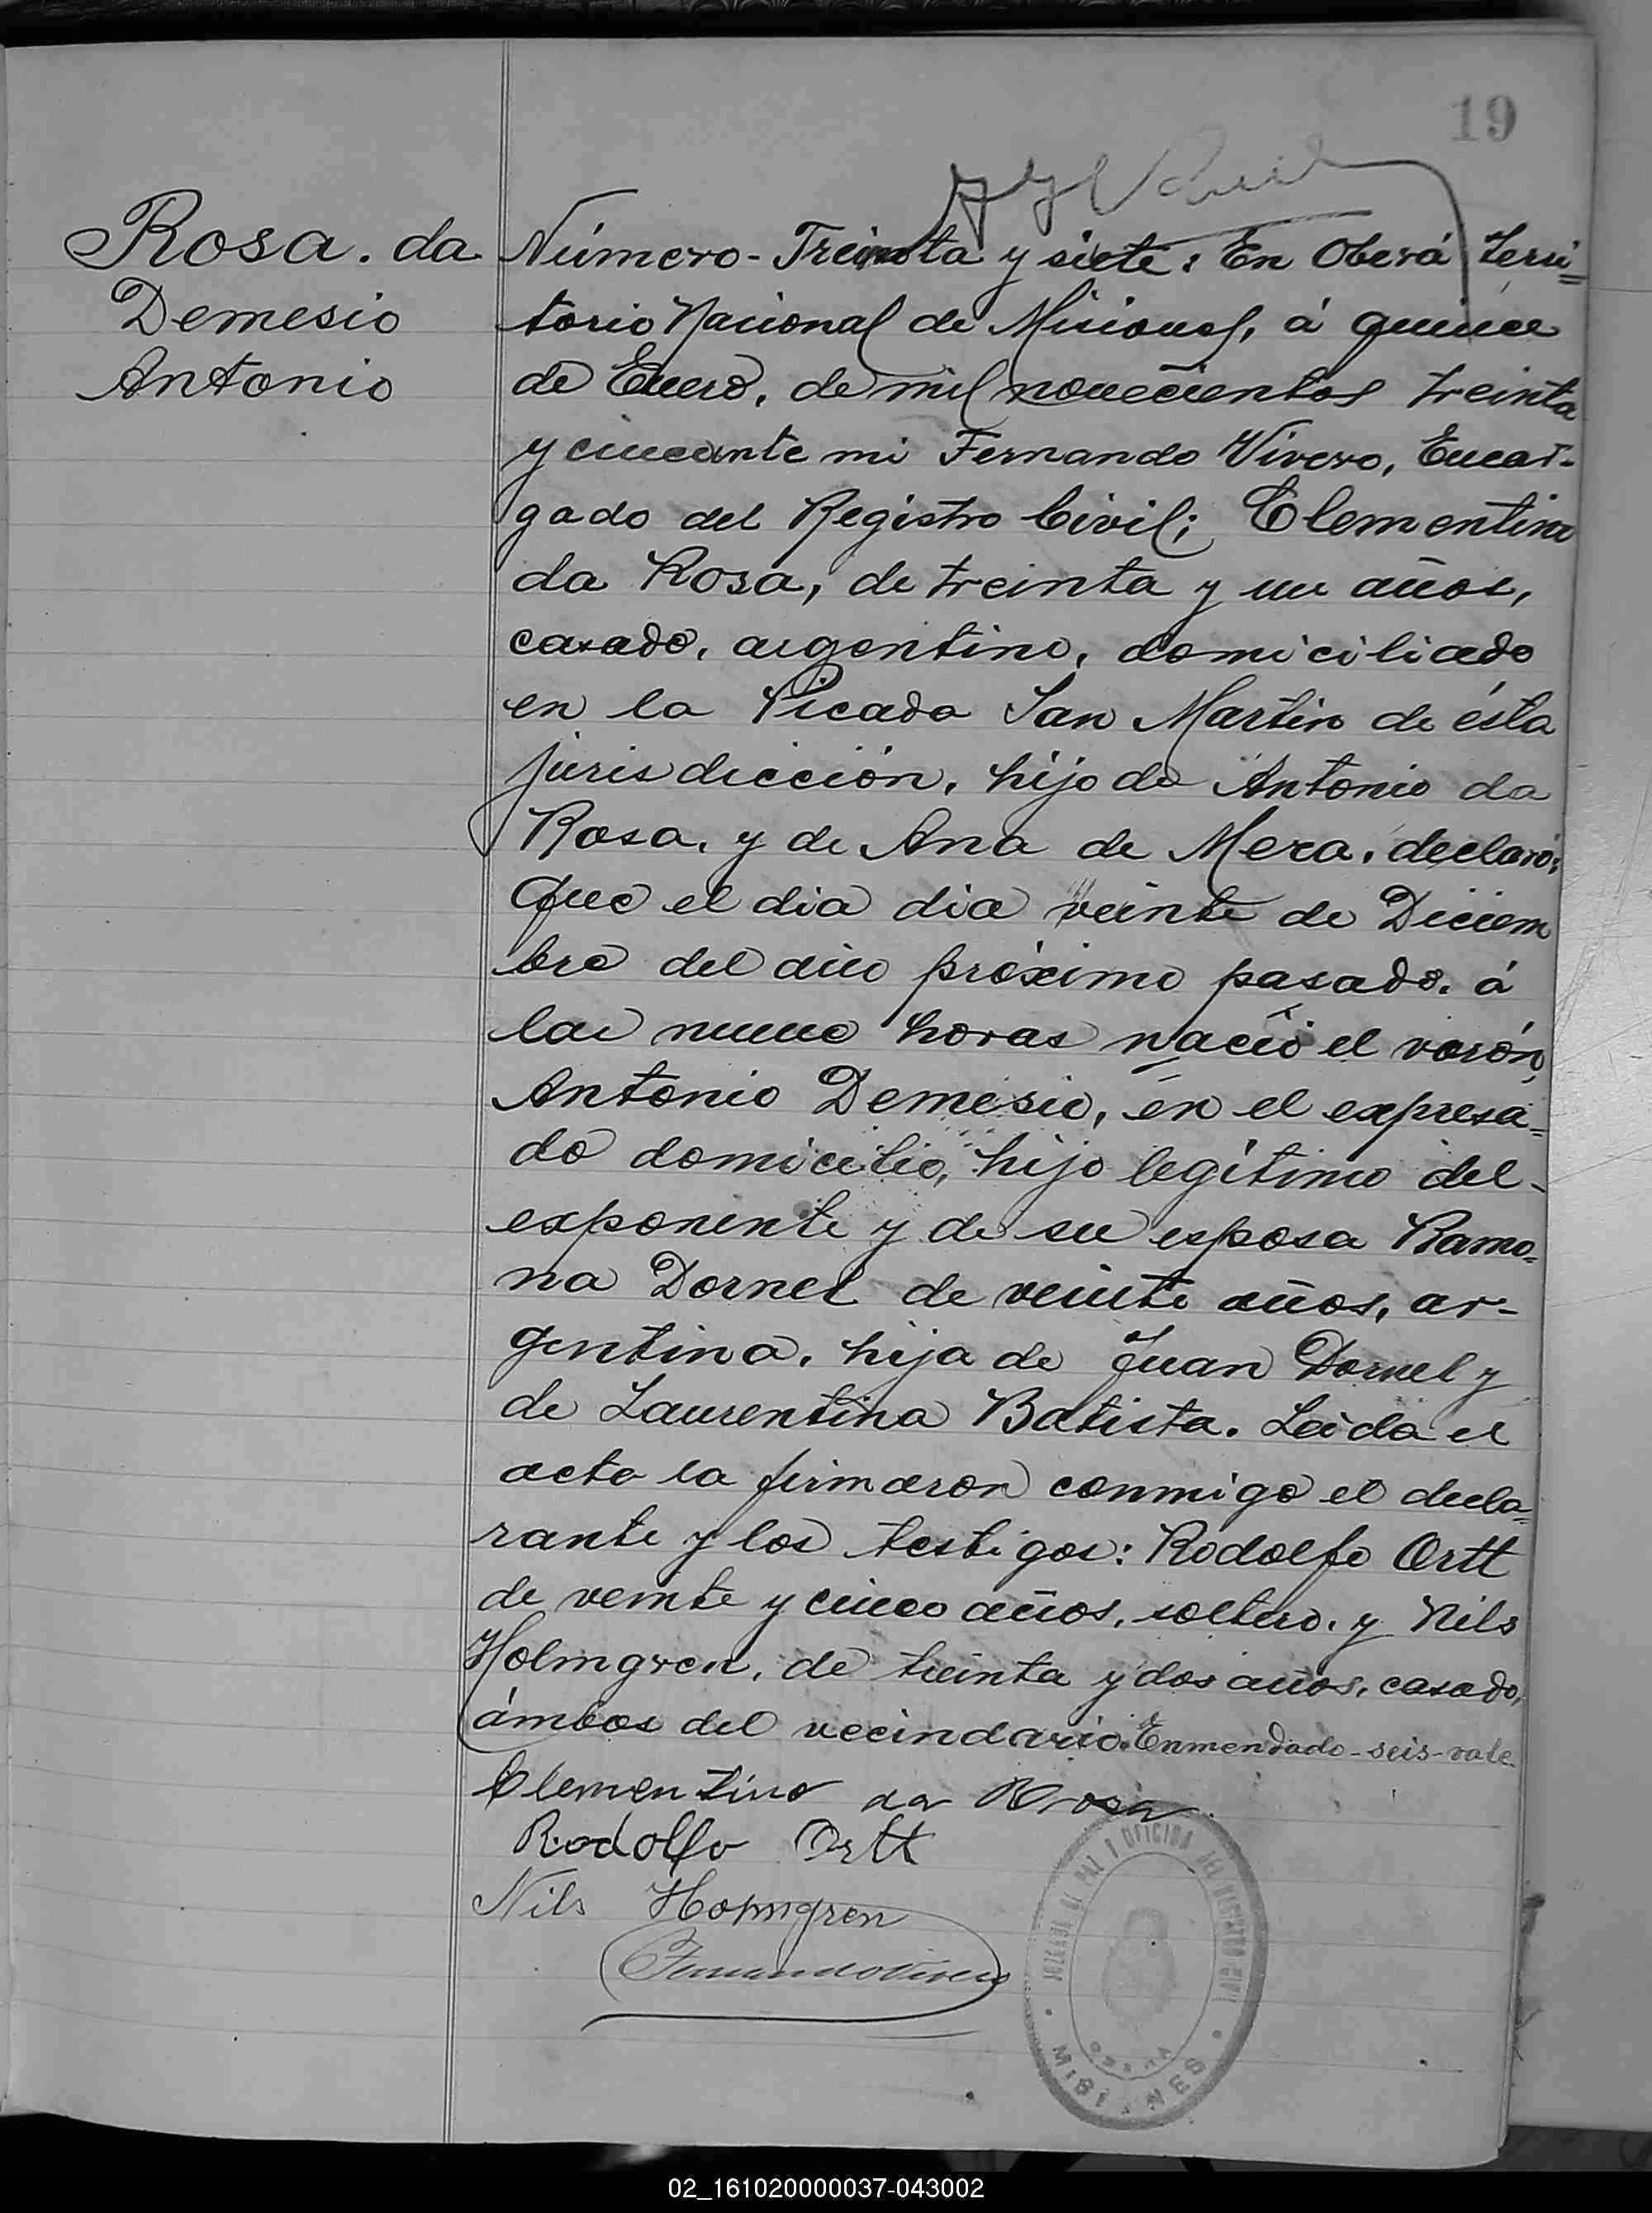 19
Rosa. da
Demesio
Antonio
Número - Treinta y siete: En Oberá Terri=
torio Nacional de Misiones, á quince
de Enero, de mil novecientos treinta
y cinco ante mi Fernando Vivero, Encar-
gado del Registro Civil; Clementino
da Rosa, de treinta y un años,
casado, argentino, domiciliado
en la Picada San Martin de ésta
jurisdicción, hijo de Antonio da
Rosa, y de Ana de Meza, declaró:
Que el dia dia veinte de Diciem
bre del año próximo pasado, á
las nueve horas nació el varón,
Antonio Demesio, en el expresa=
do domicilio, hijo legítimo del-
exponente y de su esposa Ramo=
na Dornel de veinte años, ar-
gentina, hija de Juan Dornel y
de Laurentina Batista. Leida el
acta la firmaron conmigo el decla=
rante y los testigos: Rodolfo Ortt
de veinte y cinco años, soltero, y Nils
Holmgren, de treinta y dos años, casado,
ámbos del vecindario. Enmendado - seis - vale
Clementino da Rosa
Rodolfo Ortt
Nils Holmgren
Fernando Vivero
JUZGADO DE PAZ Y OFICINA DEL REGISTRO CIVIL
OBERA
MISIONES
02_161020000037-043002